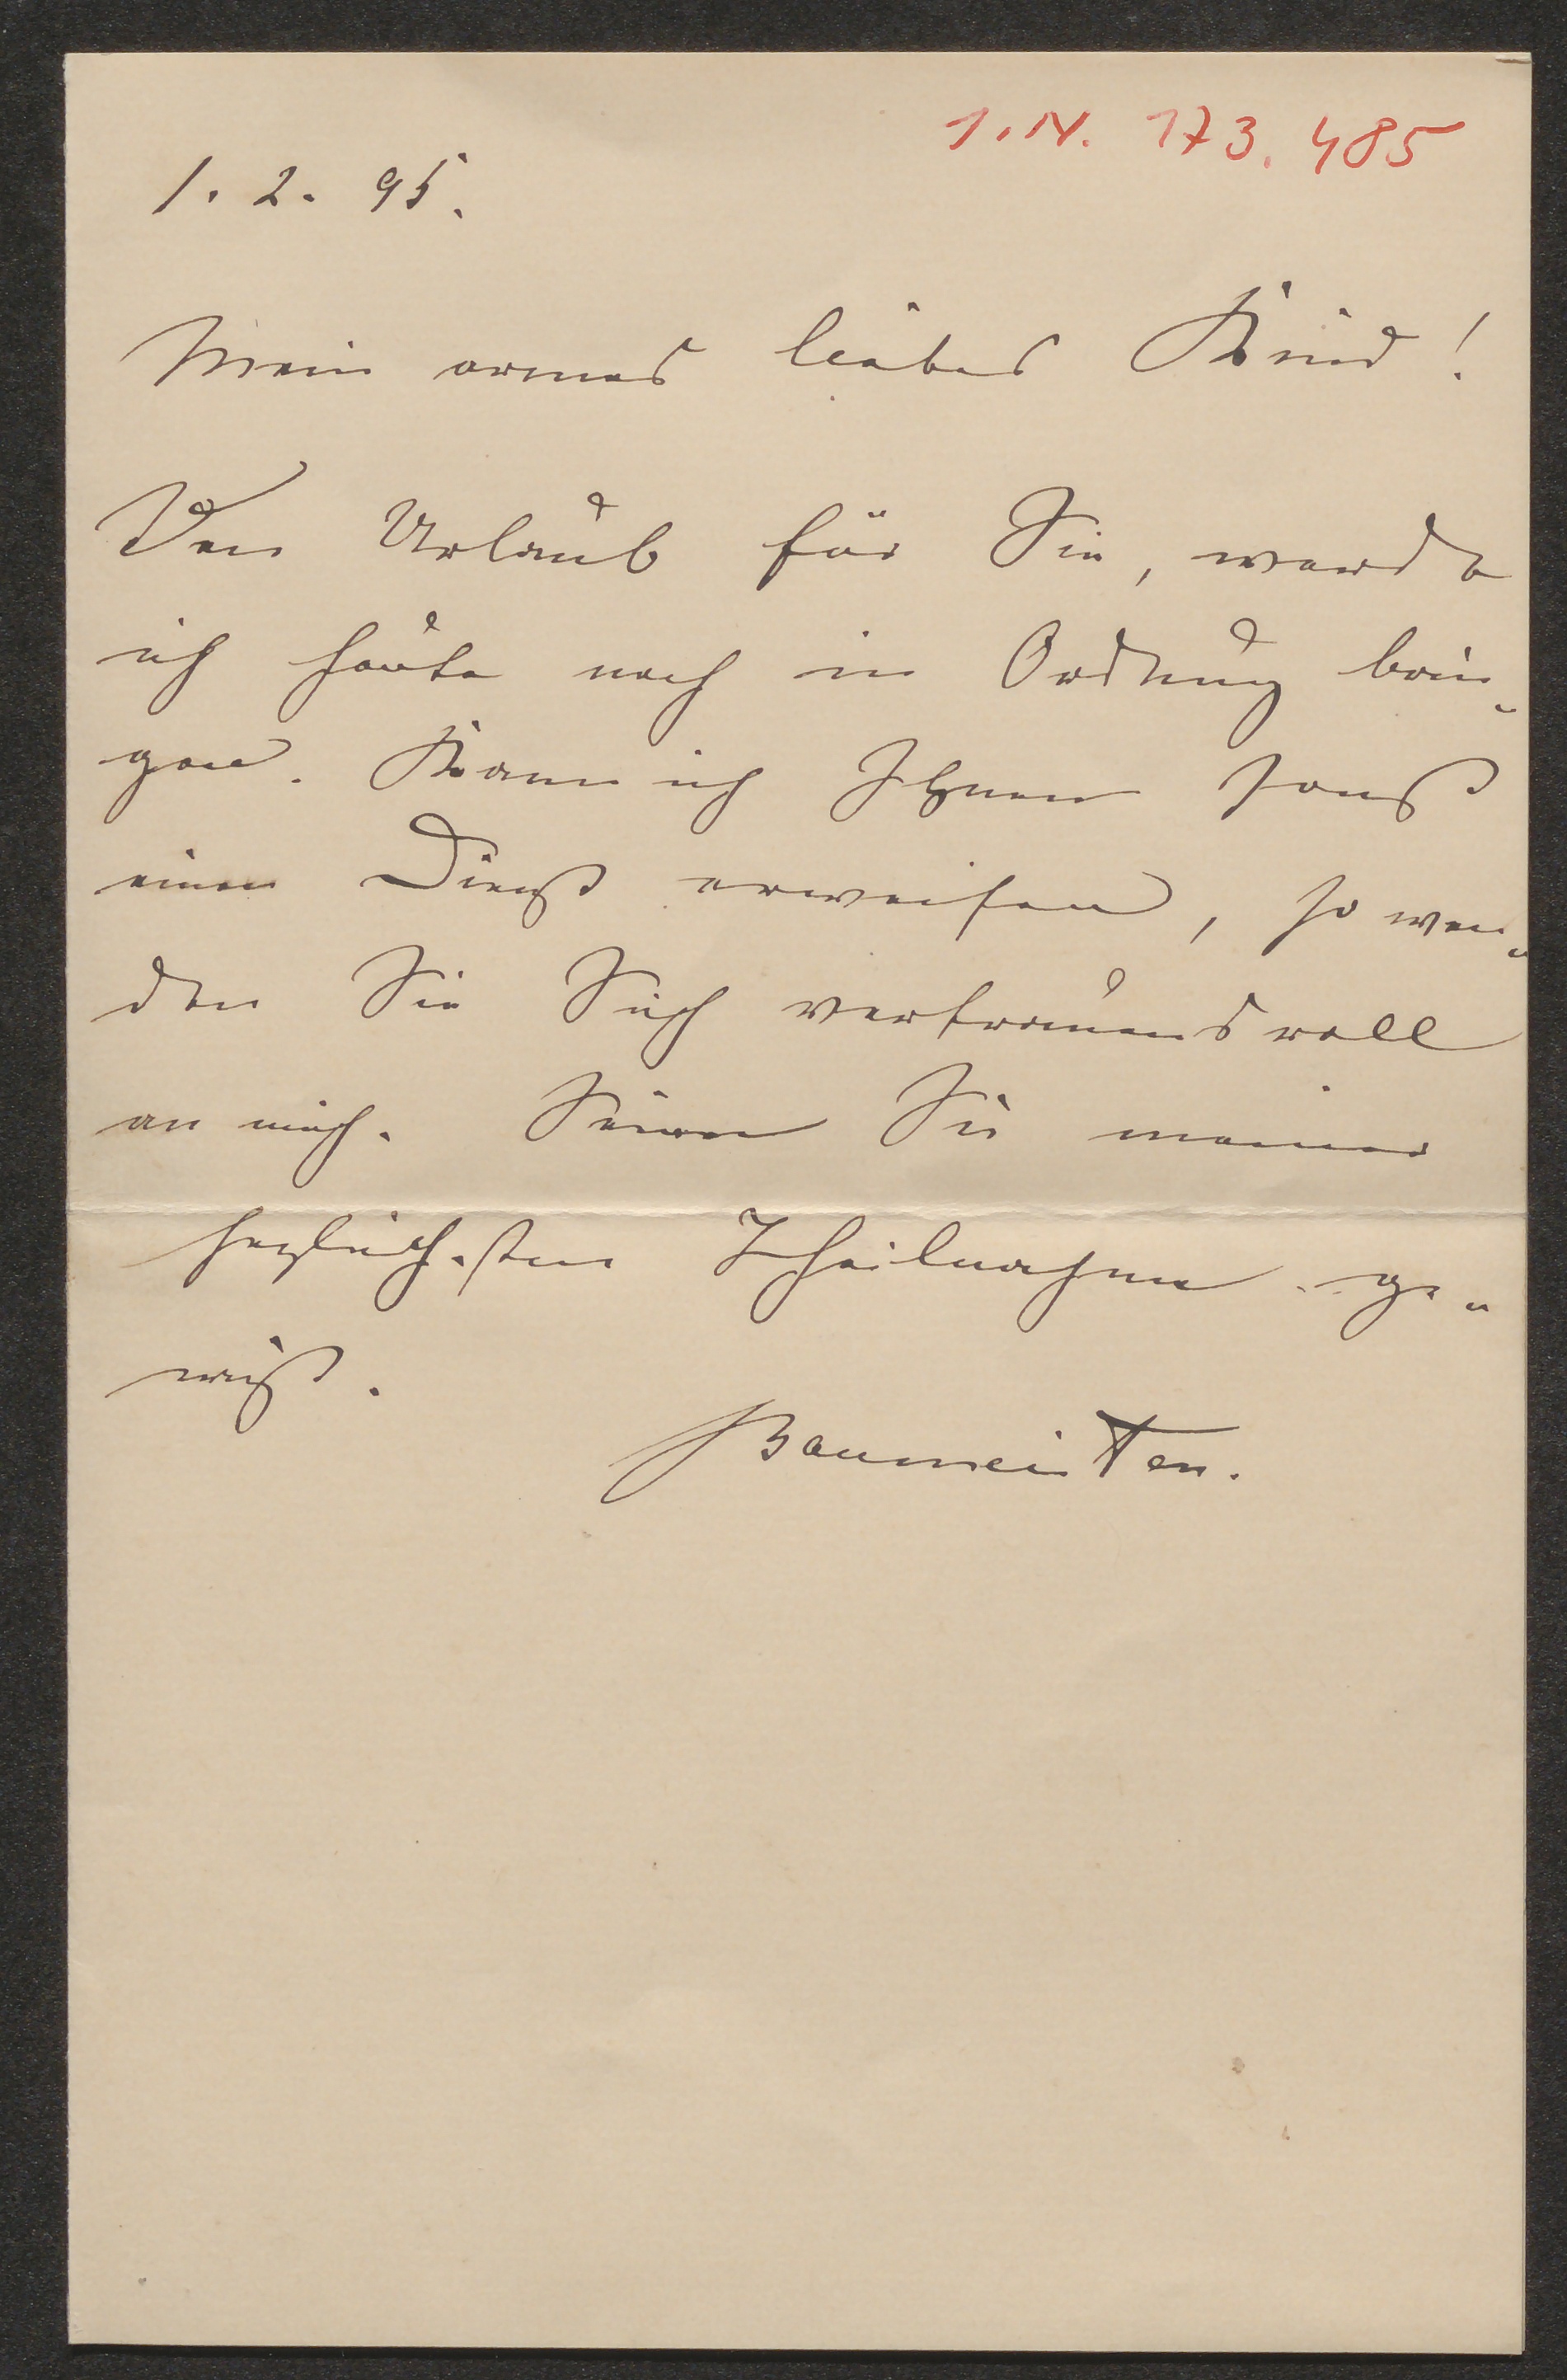 I. N. 173.485
1. 2. 95.
Mein armes liebes Kind!
Den Urlaub für Sie, werde
ich heute noch in Ordnung brin-
gen. Kann ich Ihnen sonst
einen Dienst erweisen, so wen-
den Sie Sich vertrauensvoll
an mich. Seien Sie meiner
herzlichsten Theilnahme ge-
wiß.
Baumeister.